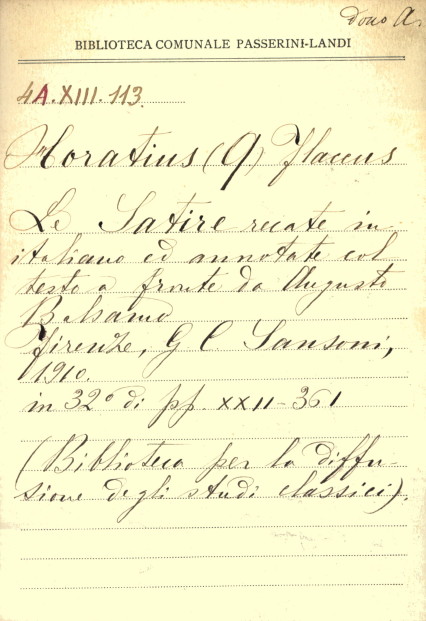 dono A.
BIBLIOTECA COMUNALE PASSERINI-LANDI
4A.XIII.113.
Horatius (Q) Flaccus
Le Satire recate in
italiano ed annotate col
testo a fronte da Augusto
Balsamo
Firenze, G C Sansoni,
1910.
in 32º di pp. XXII-361
(Biblioteca per la diffu-
sione degli studi classici).